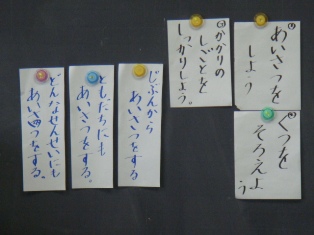 あいさつを
しよう
くつを
そろえよ
う
かかりの
しごとを
しっかりしよう。
じぶんから
あいさつをする
ともだちにも
あいさつをする。
どんなせんせいにも
あいさつをする。